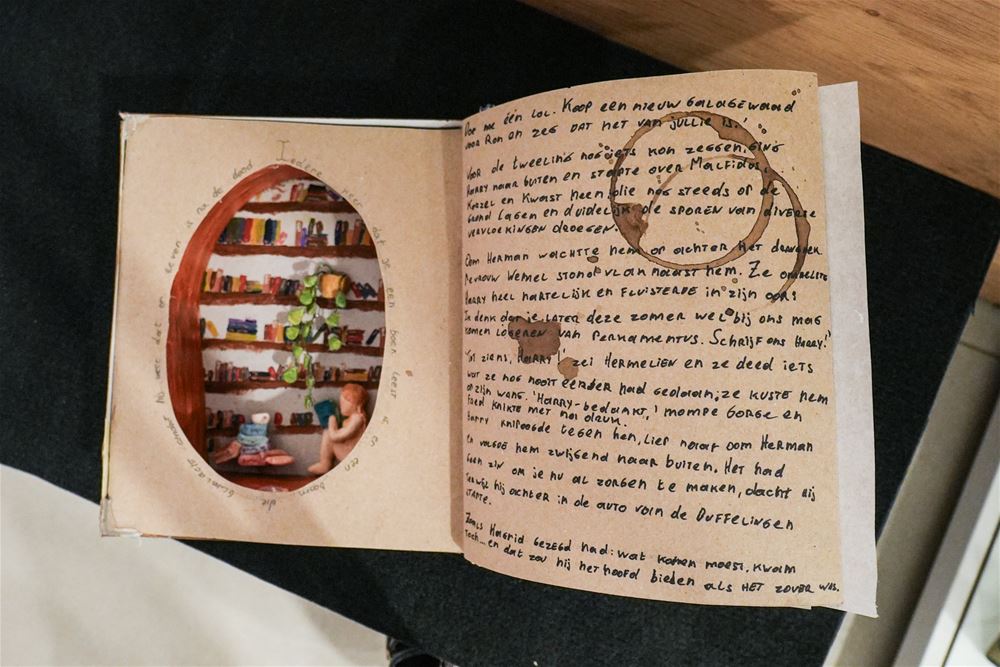 Iedere keer dat je een boek leest is er een boom die glimlacht omdat hij weet dat er leven is na de dood
Doe me één lol. Koop een nieuw galagewaad
voor Ron en zeg dat het van jullie is!
Voor de tweeling nog iets kon zeggen, ging
Harry naar buiten en stapte over Malfidus,
Korzel en Kwast heen, die nog steeds op de
grond lagen en duidelijk de sporen van diverse
vervloekingen droegen.
Oom Herman wachtte hem op achter het
Mevrouw Wemel stond vlak naast hem. Ze omhelsde
Harry heel hartelijk en fluisterde in zijn oor:
Ik denk dat je later deze zomer wel bij ons mag
komen logeren van Perkamentus. Schrijf ons Harry!'
Tot ziens, Harry!' zei Hermelien en ze deed iets
wat ze nog nooit eerder had gedaan; ze kuste hem
op zijn wang. 'Harry - bedankt,' mompe George en
Fred knikte met
Harry knipoogde tegen hen, liep naar oom Herman
en volgde hem zwijgend naar buiten. Het had
geen zin om je nu al zorgen te maken, dacht hij
terwijl hij achter in de auto van de Duffelingen
stapte.
Zoals Hagrid gezegd had: wat komen moest, kwam
toch... en dat zou hij het hoofd bieden als het zover was.